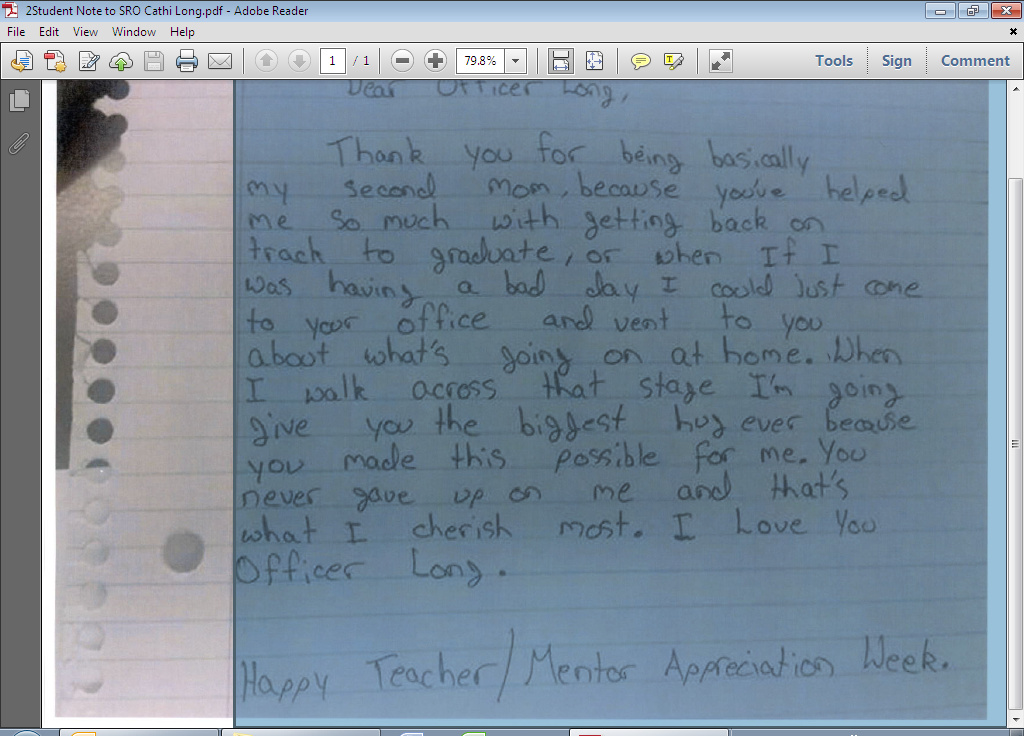 2Student Note to SRO Cathi Long.pdf - Adobe Reader
File Edit View Window Help
1 / 1 79.8% Tools Sign Comment
Dear Officer Long,
Thank you for being basically
my second mom, because you've helped
me so much with getting back on
track to graduate, or when If I
was having a bad day I could just come
to your office and vent to you
about what's going on at home. When
I walk across that stage I'm going
give you the biggest hug ever because
you made this possible for me. You
never gave up on me and that's
what I cherish most. I Love You
Officer Long.
Happy Teacher/Mentor Appreciation Week.